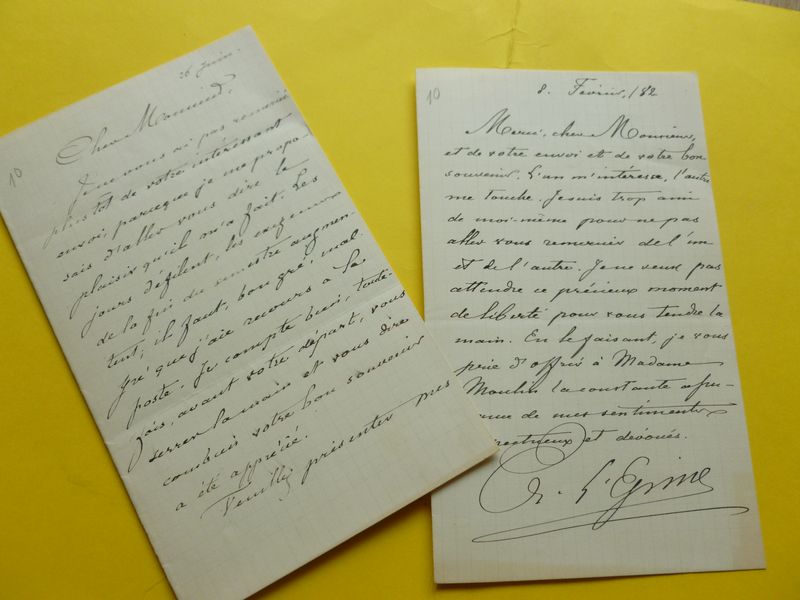 10
26 Juin.
Cher Monsieur,
Je ne vous ai pas remercié
plus tôt de votre intéressant
envoi, parceque je me propo-
sais d'aller vous dire le
plaisir qu'il m'a fait. Les
jours défilent, les examens
de la fin du semestre augmen-
tent; il faut, bon gré, mal
gré que j'aie recours à la
poste. Je compte bien, toute-
fois, avant votre départ, vous
serrer la main et vous dire
combien votre bon souvenir
a été apprécié.
Veuillez présenter mes
10
8. Février, 182
Merci, cher Monsieur,
et de votre envoi et de votre bon
souvenir. L'un m'intéresse, l'autre
me touche. Je suis trop ami
de moi-même pour ne pas
aller vous remercier de l'un
et de l'autre. Je ne veux pas
attendre ce précieux moment
de liberté pour vous tendre la
main. En le faisant, je vous
prie d'offrir à Madame
Moulin la constante
de mes sentiments
et dévoués.
Ch.